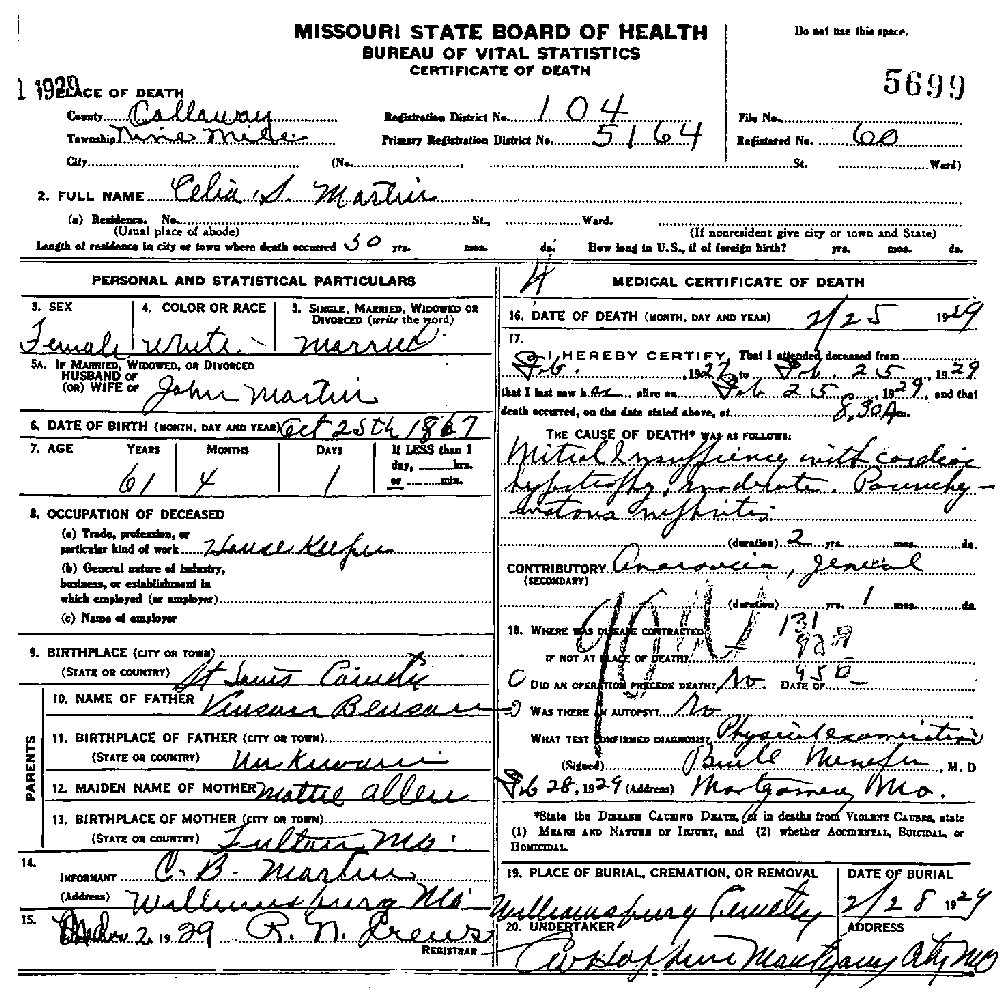 MISSOURI STATE BOARD OF HEALTH
BUREAU OF VITAL STATISTICS
CERTIFICATE OF DEATH
Do not use this space.
5699
1 1929
PLACE OF DEATH
County Callaway Registration District No. 104 File No.
Township Nine Mile Primary Registration District No. 5164 Registered No. 60
City (No. St. Ward)
2. FULL NAME Celia S. Martin
(a) Residence. No. St., Ward.
(Usual place of abode) (If nonresident give city or town and State)
Length of residence in city or town where death occurred 50 yrs. mos. ds. How long in U.S., if of foreign birth? yrs. mos. ds.
PERSONAL AND STATISTICAL PARTICULARS
3. SEX 4. COLOR OR RACE 5. SINGLE, MARRIED, WIDOWED OR DIVORCED (write the word)
Female White Married
5A. IF MARRIED, WIDOWED, OR DIVORCED
HUSBAND OF
(OR) WIFE OF John Martin
6. DATE OF BIRTH (MONTH, DAY AND YEAR) Oct 25th 1867
7. AGE YEARS MONTHS DAYS If LESS than 1 day, hrs. or min.
61 4 1
8. OCCUPATION OF DECEASED
(a) Trade, profession, or
particular kind of work House Keeper
(b) General nature of industry,
business, or establishment in
which employed (or employer)
(c) Name of employer
9. BIRTHPLACE (CITY OR TOWN)
(STATE OR COUNTRY) St Louis County
PARENTS
10. NAME OF FATHER Vinson Benson
11. BIRTHPLACE OF FATHER (CITY OR TOWN)
(STATE OR COUNTRY) Unknown
12. MAIDEN NAME OF MOTHER Mattie Allen
13. BIRTHPLACE OF MOTHER (CITY OR TOWN)
(STATE OR COUNTRY) Fulton Mo.
14.
INFORMANT C. B. Martin
(Address) Williamsburg Mo
15.
2, 1929 R. N. Crews
REGISTRAR
4
MEDICAL CERTIFICATE OF DEATH
16. DATE OF DEATH (MONTH, DAY AND YEAR) 2/25 1929
17.
I HEREBY CERTIFY, That I attended deceased from
Feb. , 1927, to Feb. 25, 1929
that I last saw h alive on Feb 25, 1929, and that
death occurred, on the date stated above, at 8,30 A m.
THE CAUSE OF DEATH* WAS AS FOLLOWS:
Mitral Insuffiency with cardiac
hypotrophy, moderate. Parinchy-
matous nephritis
(duration) 2 yrs. mos. ds.
CONTRIBUTORY Anasarcia, general
(SECONDARY)
(duration) yrs. 1 mos. ds.
131
18. WHERE WAS DISEASE CONTRACTED
IF NOT AT PLACE OF DEATH?
DID AN OPERATION PRECEDE DEATH? No. DATE OF
WAS THERE AN AUTOPSY? No
WHAT TEST CONFIRMED DIAGNOSIS? Physical examination
(Signed) Menefee, M.D
Feb 28, 1929 (Address) Montgomery Mo.
*State the DISEASE CAUSING DEATH, or in deaths from VIOLENT CAUSES, state
(1) MEANS AND NATURE OF INJURY, and (2) whether ACCIDENTAL, SUICIDAL, or
HOMICIDAL.
19. PLACE OF BURIAL, CREMATION, OR REMOVAL DATE OF BURIAL
Williamsburg Cemetery 2/28 1929
20. UNDERTAKER ADDRESS
Hopkins Montgomery City Mo